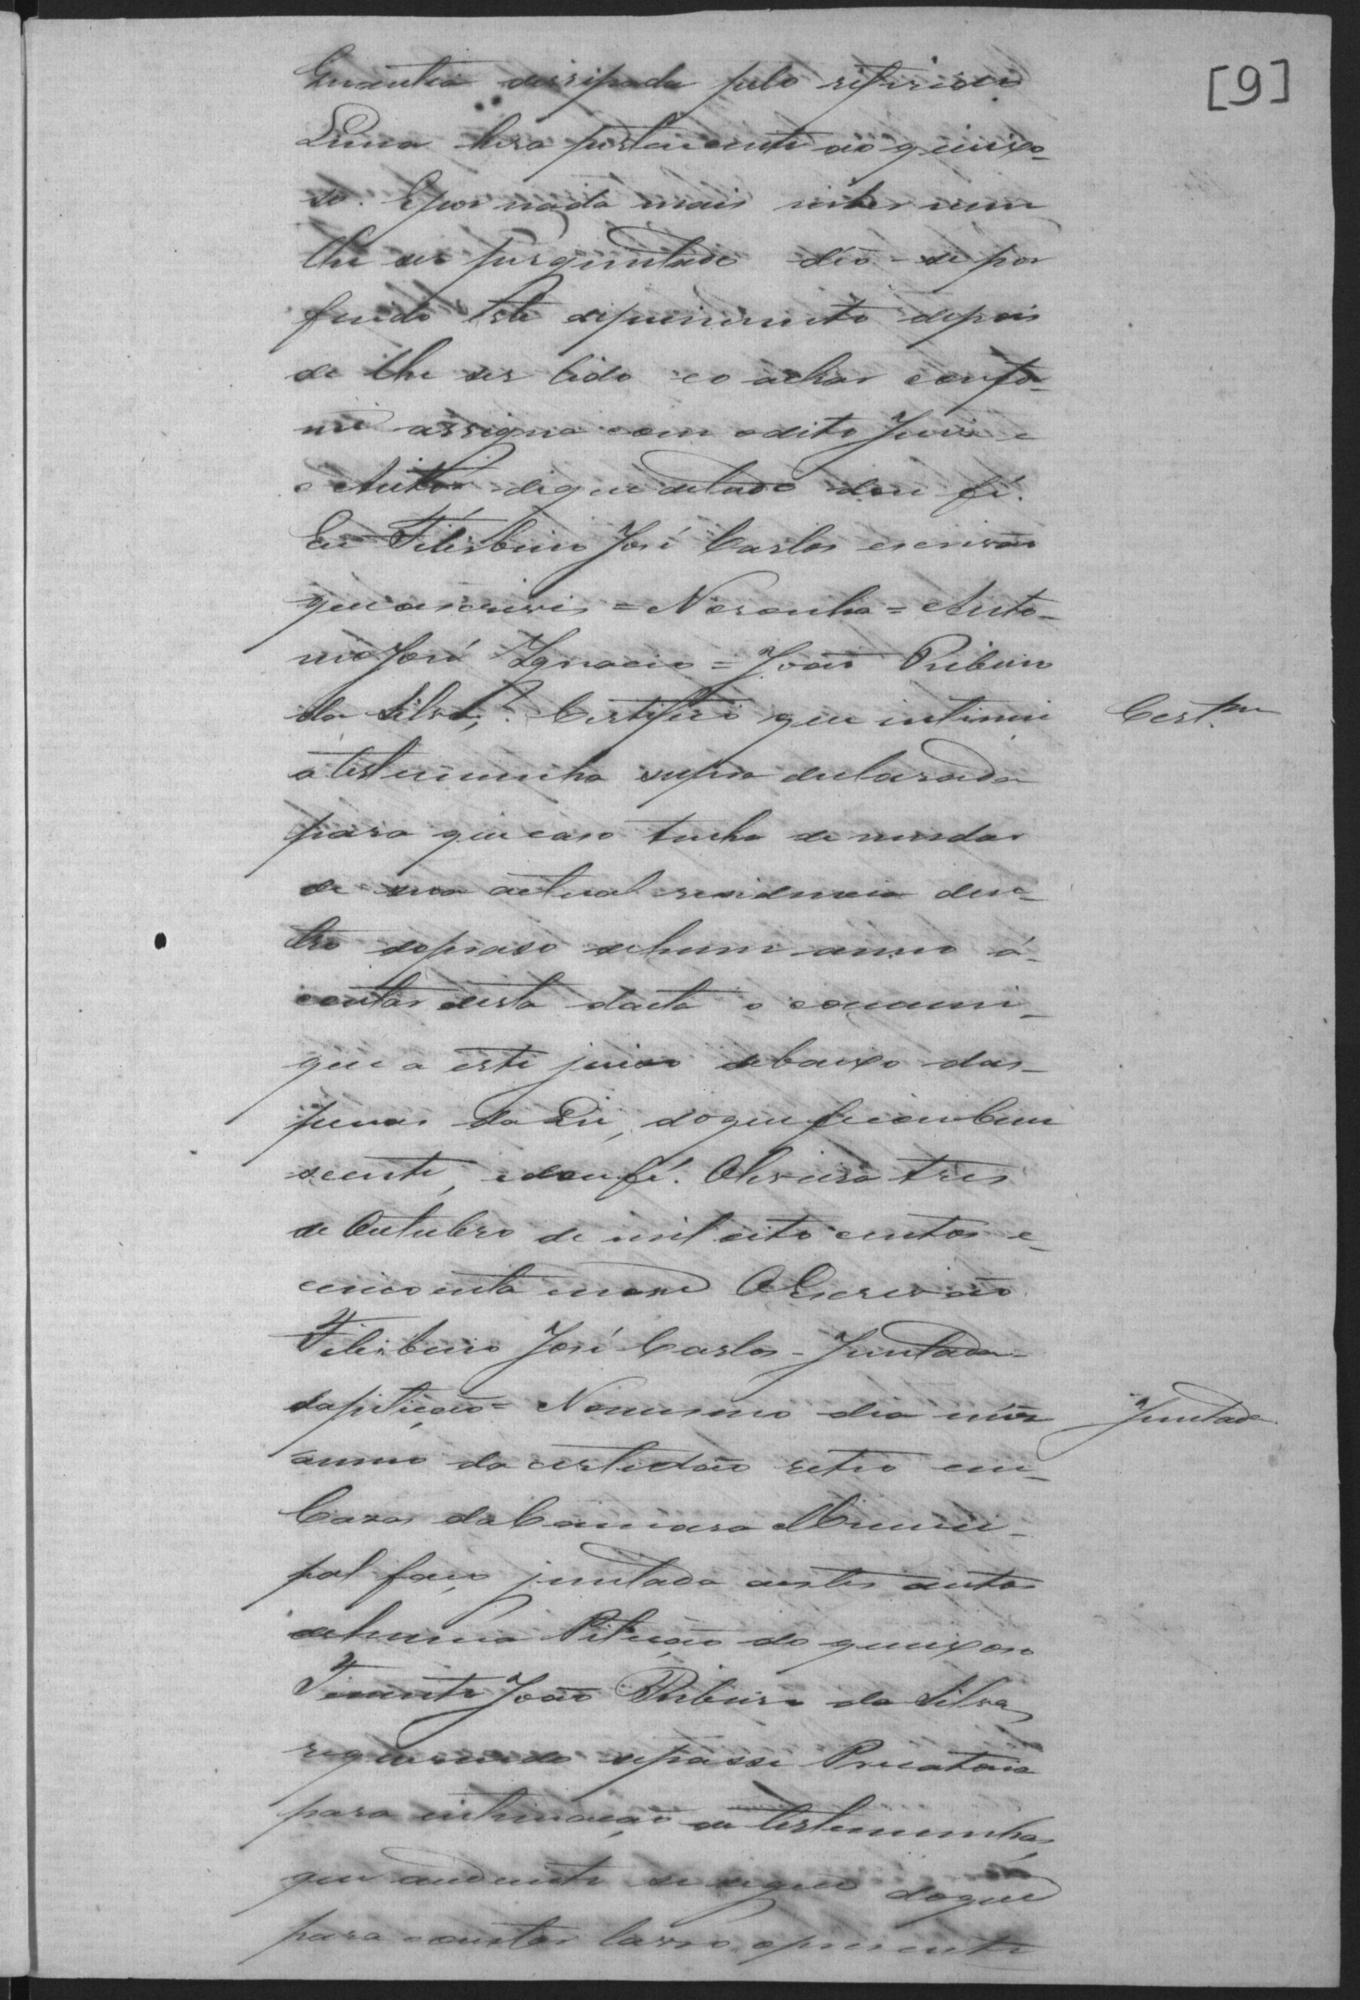 [9]
Quantia dissipada pelo referido
Lima hera pertencente ao queixo-
so. E por nada mais saber nem
lhe ser perguntado deo-se por
findo este depoimento depois
de lhe ser lido eo achar confor-
me assigna com odito Juiz e
e Autor deque detudo dou fé.
Eu Felisbino José Carlos escrivão
que escrivi = Noronha = Anto-
nio José Ignacio = João Ribeiro
da Silva, Certifico que intimei
a testemunha supra declarada
para que caso tenha de mudar
de sua actual residencia den-
tro doprazo dehum anno á
contar desta dacta o comuni-
que a este juizo debaixo das
penas da Lei, doque ficou bem
sciente, edou fé. Oliveira tres
de Outubro de mil oito centos e
cincoenta enove O Escrivão
Felisbino José Carlos - Juntada
dapetição = Nomesmo dia mês
anno da certidão retro em
Caza da Camara Munici-
pal faço juntada aestes autos
dehuma Petição do queixoso
Tenente João Ribeiro da Silva,
requerendo sepasse Precatoria
para inthimação de testemunhas
que adeante se segue doque
para constar lavro opresente
Cert.am
Juntada